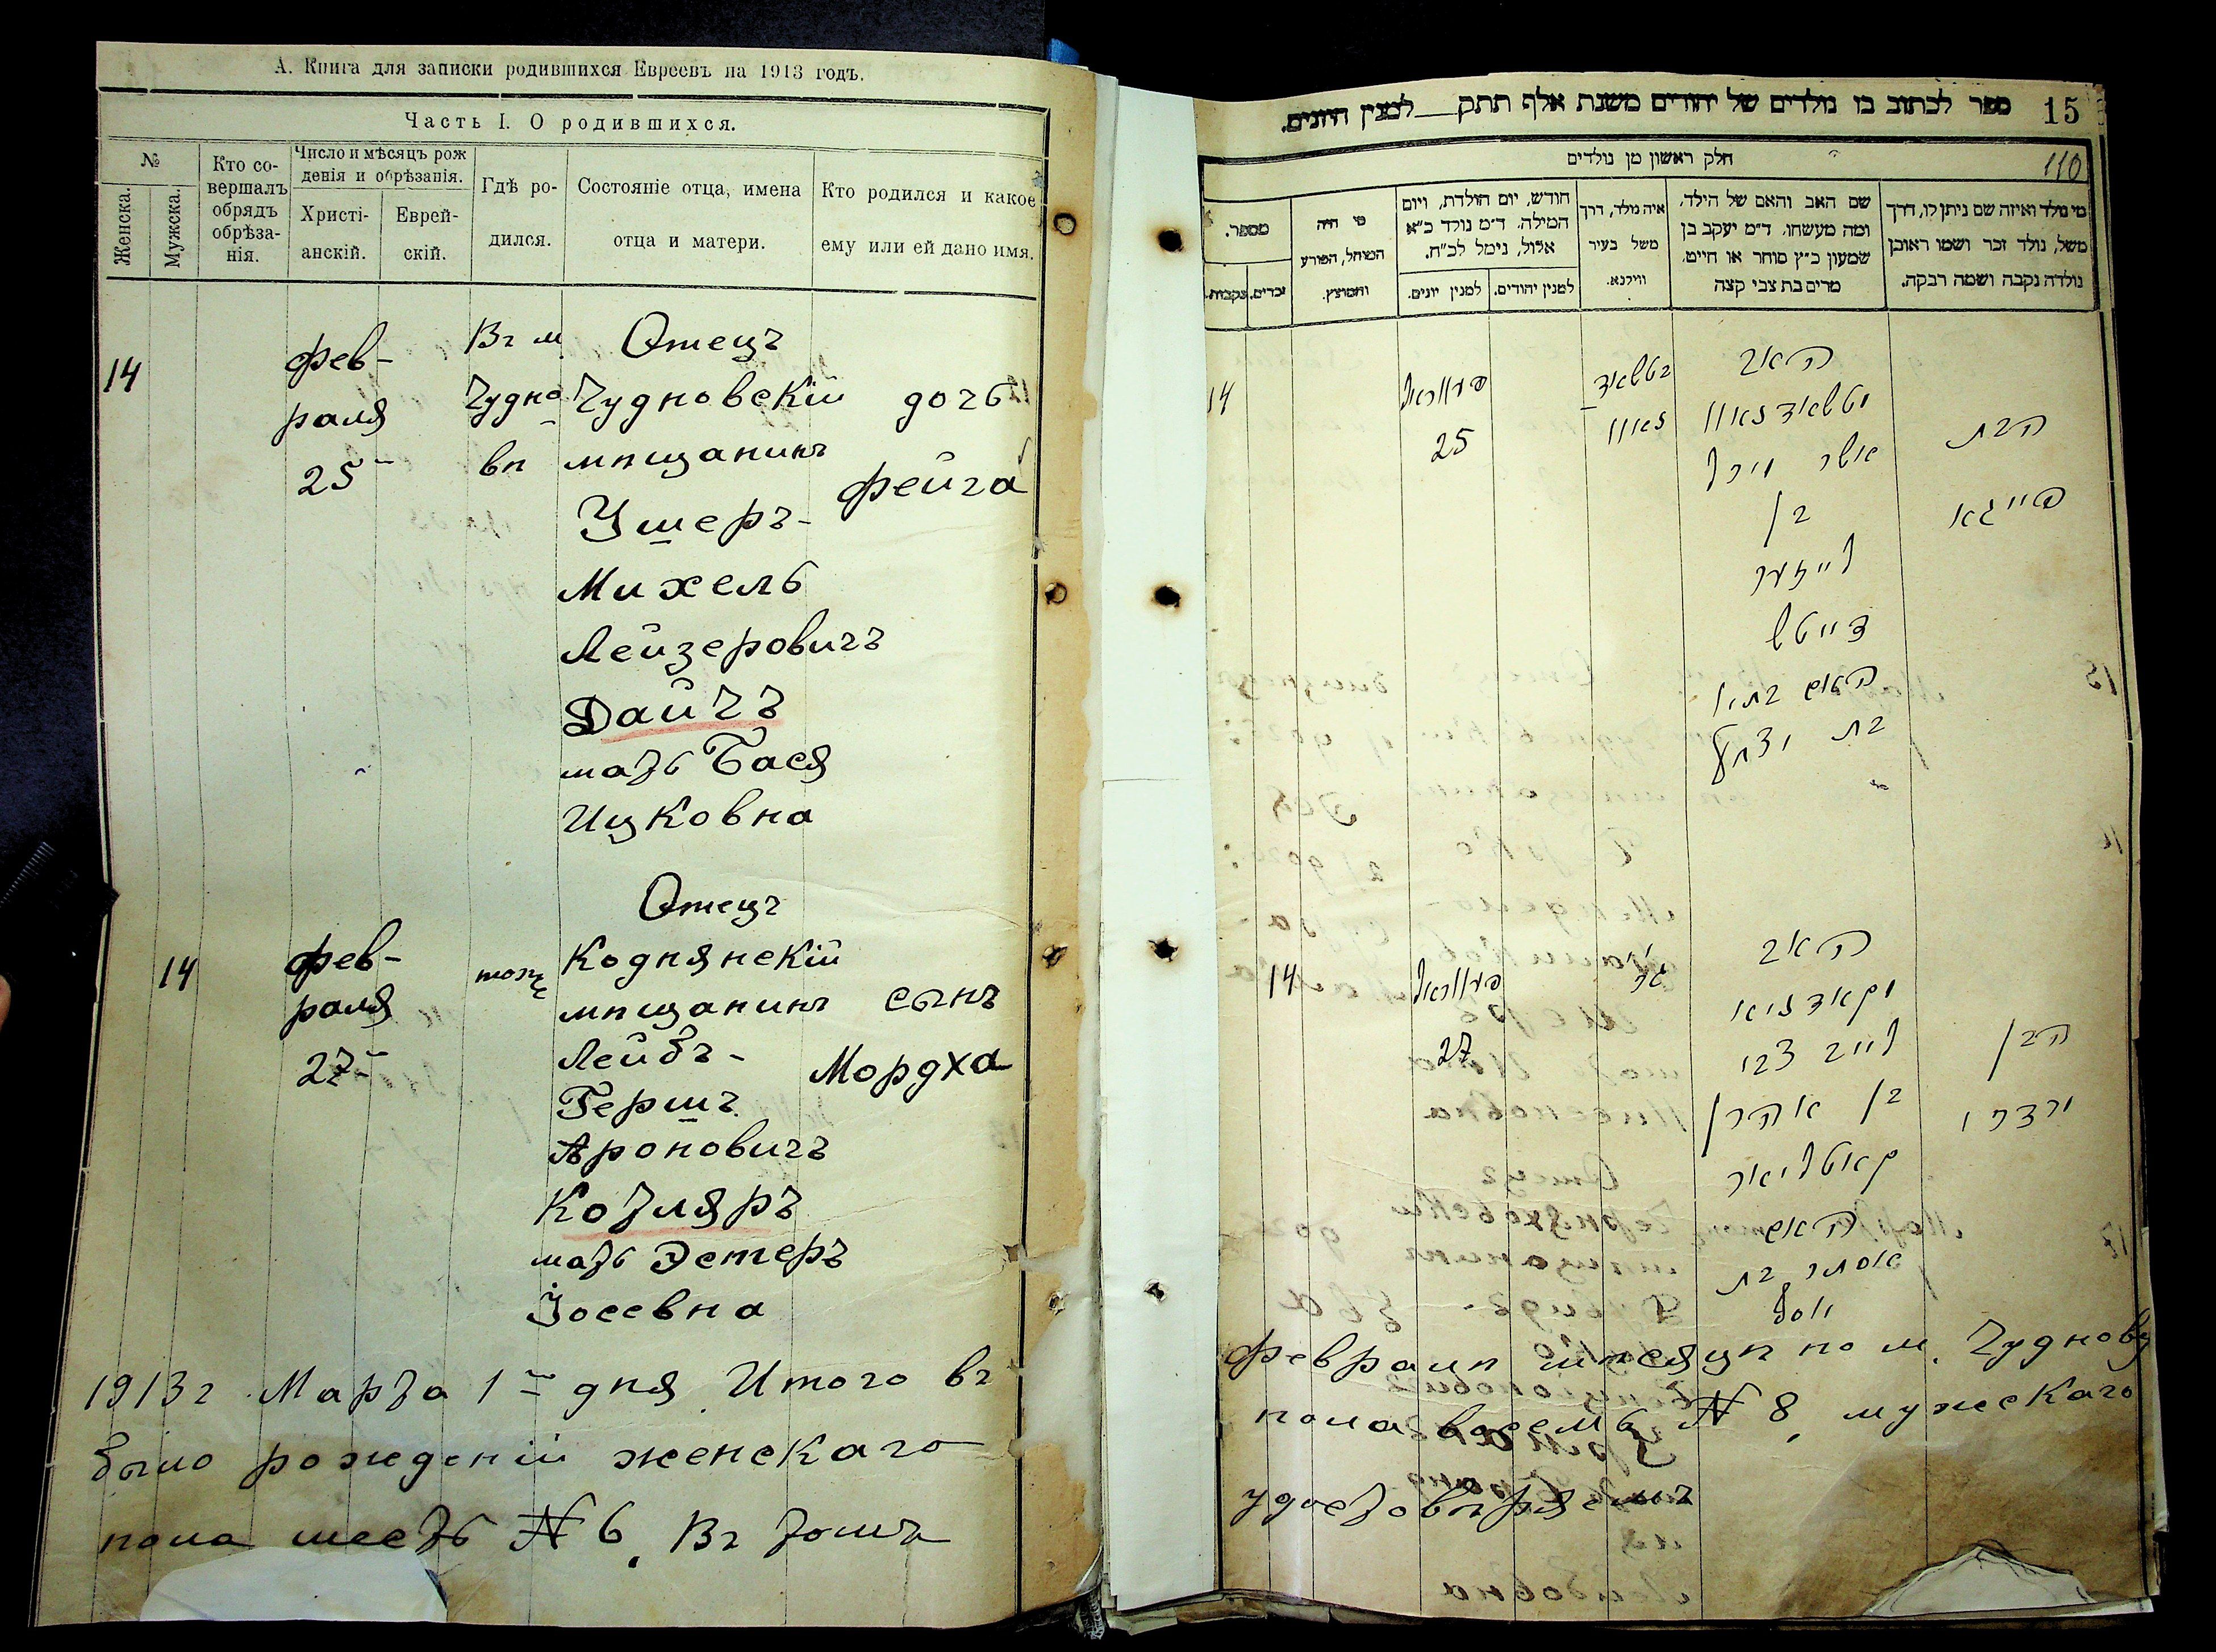 А. Книга для записки родившихся Евреевъ на 1913 годъ.
Часть I. О родившихся.
№
Женска.
Мужска.
Кто со-
вершалъ
обрядъ
обрѣза-
нія.
Число и мѣсяцъ рож
денія и обрѣзанія.
Христі-
анскій.
Еврей-
скій.
Гдѣ ро-
дился.
Состояніе отца, имена
отца и матери.
Кто родился и какое
ему или ей дано имя.
14
Фев-
раля
25
Въ м.
Чудно
вѣ
Отецъ
Чудновскій
мѣщанинъ
Ушеръ-
Михель
Лейзеровичъ
Дайчъ
мать Бася
Ицковна
дочь
Фейга
14
Фев-
раля
27
тоже
Отецъ
Коднянскій
мѣщанинъ
Лейбъ-
Гершъ
Ароновичъ
Котляръ
мать Эстеръ
Іосевна
сынъ
Мордха
1913 г. Марта 1 дня. Итого въ
было рожденій женскаго
пола шесть № 6. Въ томъ
ספר לכתוב בו נולדים של יהודים משנת אלף תתק למנין היונים.
15
110
חלק ראשון מן נולדים
מי נולד ואיזה שם ניתן לו, דרך
משל, נולד זכר ושמו ראובן
נולדה נקבה ושמה רבקה.
שם האב והאם של הילד,
ומה מעשהו, ד״מ יעקב בן
שמעון כ״ץ סוחר או חייט,
מרים בת צבי קצה
איה נולד, דרך
משל בעיר
ווילנא.
חודש, יום הולדת, ויום
המילה, ד״מ נולד כ״א
אלול, נימל לכ״ח.
למנין יהודים.
למנין יונים.
מי היה
המוהל, הפורע
והמוצץ.
מספר.
זכרים.
נקבות.
14
25
האב
אשר מיכל
בן
לייזער
דייטש
האם בתי׳
בת יצחק
הבת
פייגא
14
27
האב
לייב צבי
בן אהרן
קאטליאר
האם
אסתר בת
יוסף
הבן
מרדכי
Февралѣ мѣсяцѣ по м. Чуднову
пола восемь № 8, мужскаго
удостовѣряемъ